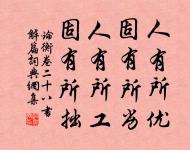 人有所優
固有所劣
人有所工
固有所拙
論衡卷二十八書
解篇詞典網集